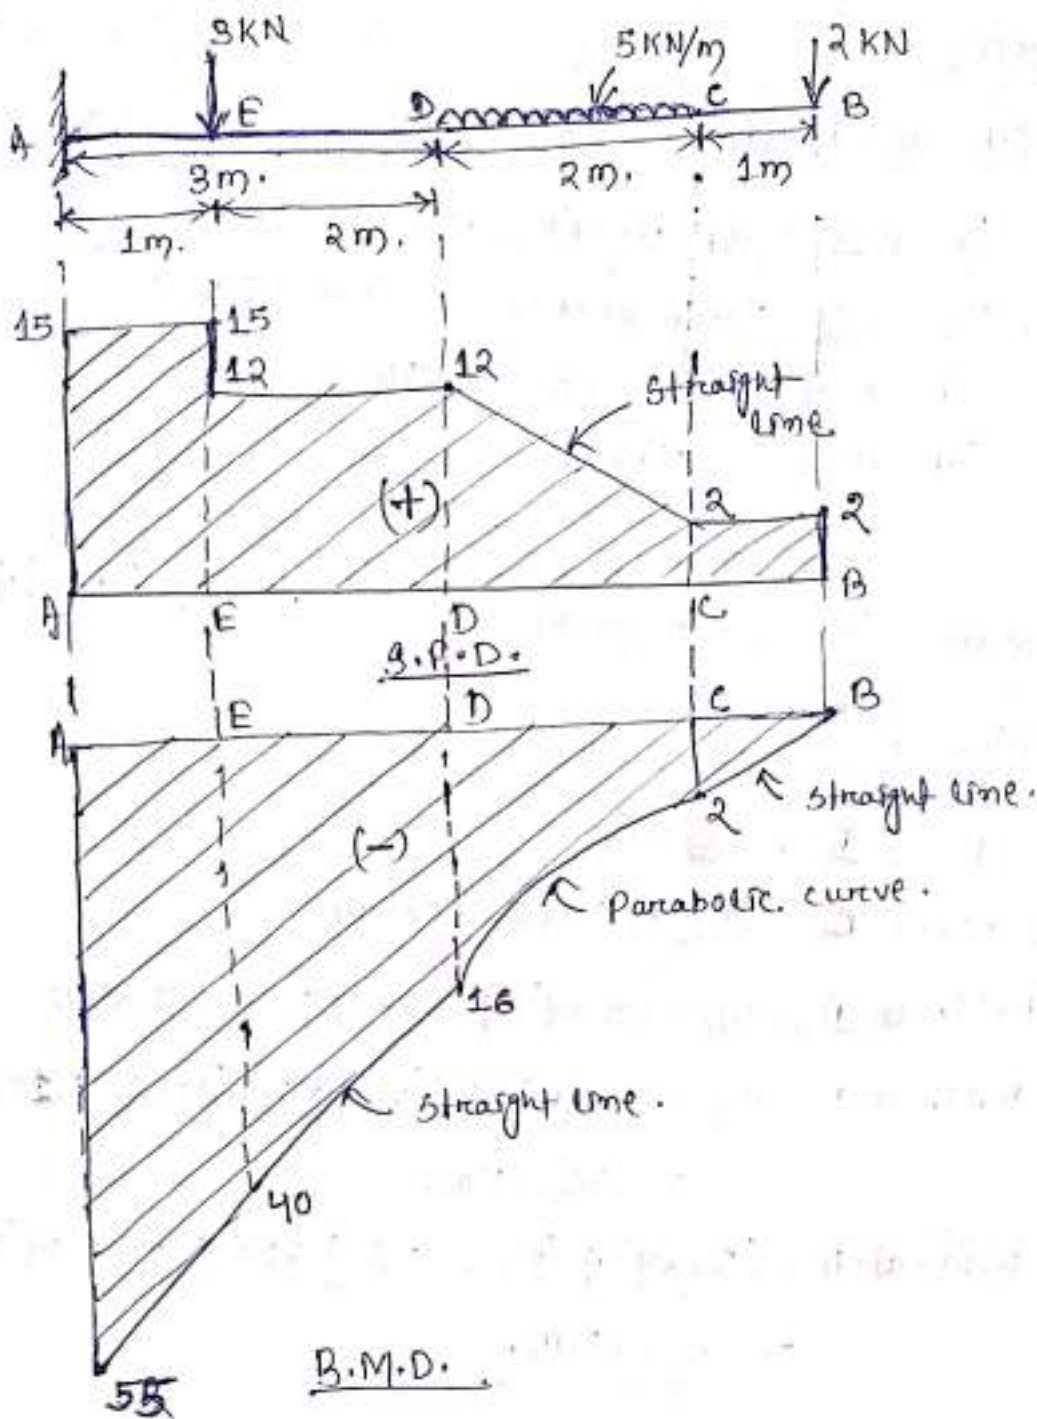 3KN 5KN/m 2KN
A E D C B
3m. 2m. 1m
1m. 2m.
15 15
12 12
straight
line
(+) 2 2
A E D C B
S.F.D.
A E D C B
(-) 2 straight line.
parabolic curve.
16
straight line.
40
55
B.M.D.